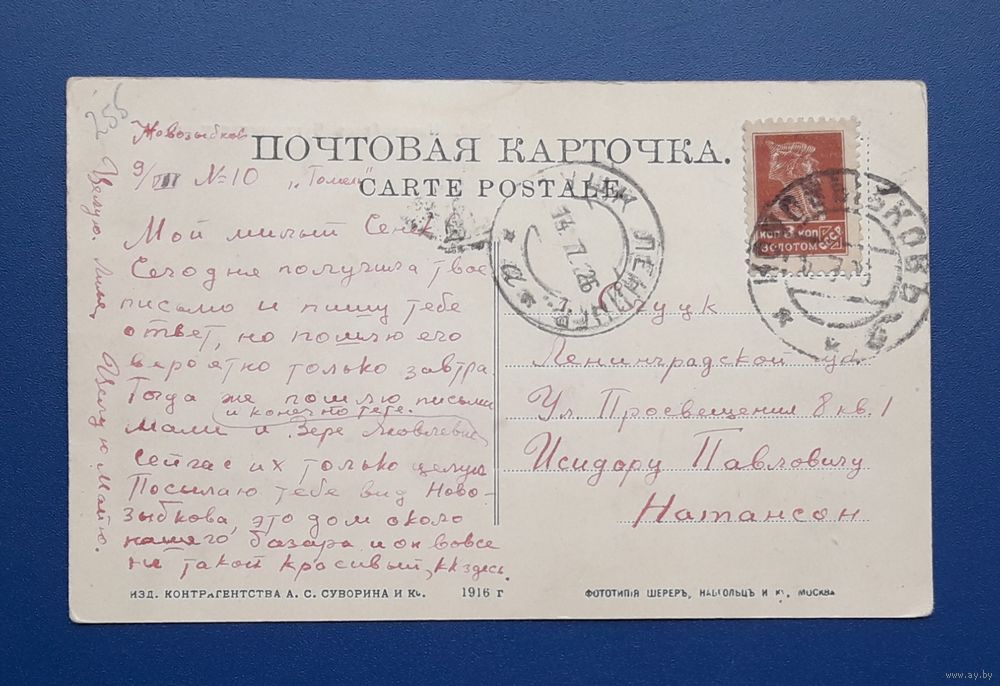 255
Новозыбков
ПОЧТОВАЯ КАРТОЧКА.
9/VIII №10 „Гомел"
CARTE POSTALE
Мой милый Сеня
Сегодня получила твое
письмо и пишу тебе
ответ, но пошлю его
вероятно только завтра
Тогда же пошлю письма
и конечно тебе.
Мали и Вере Яковлевне
Сейчас их только целую
Посылаю тебе вид Ново-
зыбкова, это дом около
нашего базара и он вовсе
не такой красивый, кк здесь.
Целую. Лиля. Целую Малю.
КОП 3 КОП
ЗОЛОТОМ
СССР
Слуцк
Ленинградской
Ул. Просвещения 8 кв. 1
Исидору Павловичу
Натансон
ИЗД. КОНТРАГЕНТСТВА А. С. СУВОРИНА И Ко. 1916 г
ФОТОТИПІЯ ШЕРЕРЪ, НАБГОЛЬЦЪ И Ко, МОСКВА
www.ay.by